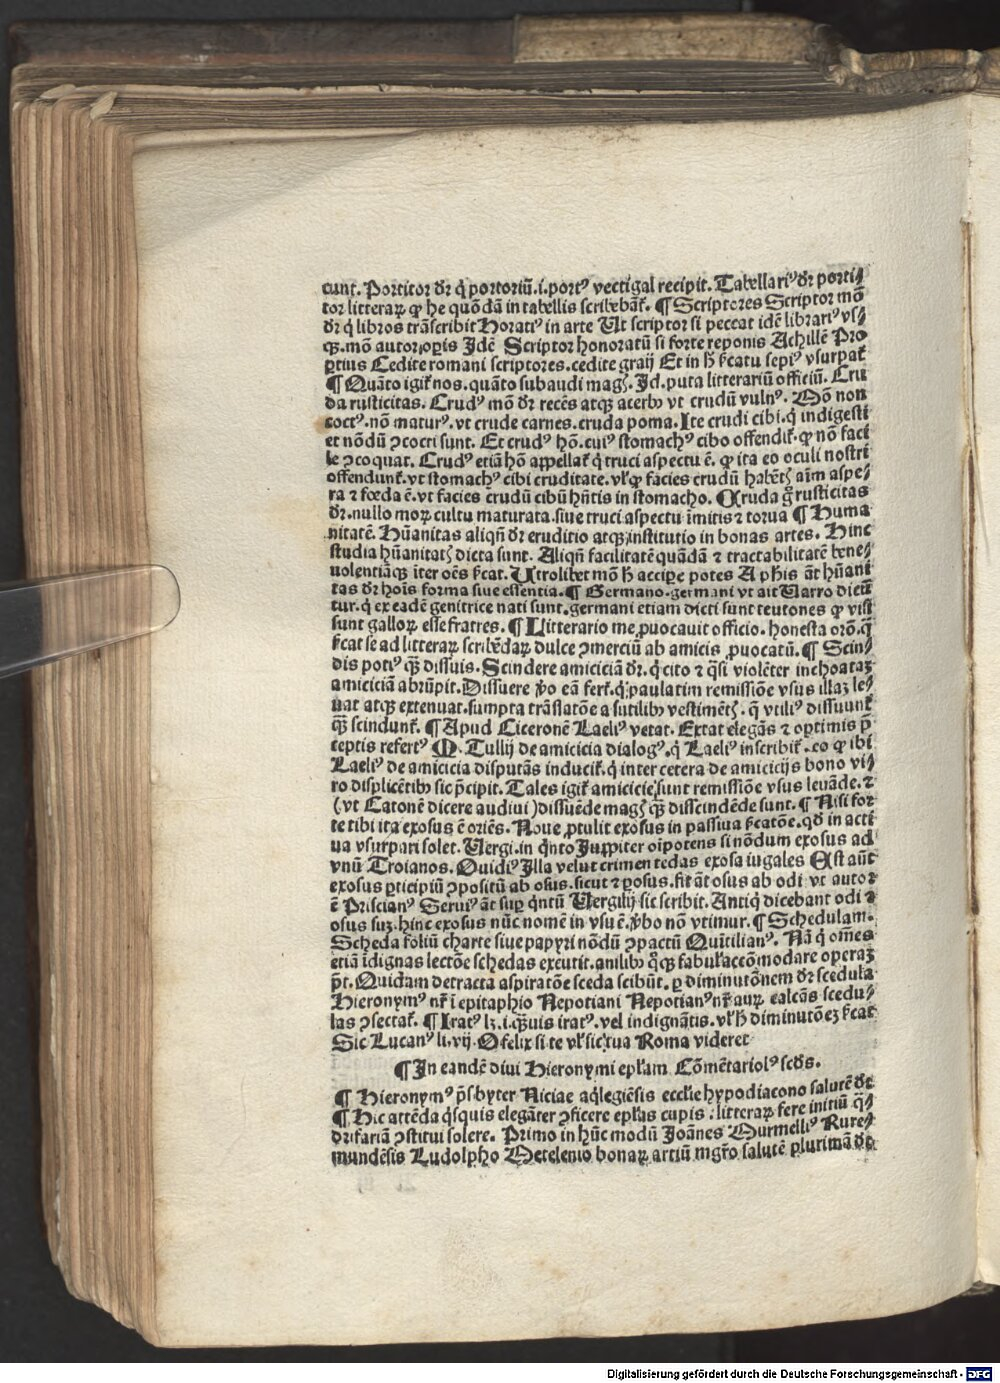 cunt. Portitor dr̄ q̇ portoriū.i.portꝰ vectigal recipit. Tabellariꝰ dr̄ porti⸗
tor litteraꝝ ꝙ he quōdā in tabellis scribebāt̄. ¶ Scriptores Scriptor mō
dr̄ q̇ libros trāscribit Horatiꝰ in arte Ut scriptor si peccat idē librariꝰ vs⸗
qꝫ. mō autor oꝑis Idē Scriptor honoratū si forte reponis Achillē Pro
ꝑtius Cedite romani scriptores.cedite graij Et in h̄ s̄catu sepiꝰ vsurpat̄
¶ Quāto igit̄ nos. quāto subaudi magꝭ. Id. puta litterariū officiū. Cru
da rusticitas. Crudꝰ mō dr̄ recēs atqꝫ acerbꝰ vt crudū vulnꝰ. Mō non
coctꝰ. nō maturꝰ. vt crude carnes. cruda poma. Ite crudi cibi. q̇ indigesti
et nōdū ꝯcocti sunt. Et crudꝰ hō. cuiꝰ stomachꝰ cibo offendit̄. ꝙ nō faci
le ꝯcoquat. Crudꝰ etiā hō appellat̄ q̇ truci aspectu ē. ꝙ ita eo oculi nostri
offendunt̄. vt stomachꝰ cibi cruditate. vl̓ ꝙ facies crudū habētꝭ aīm aspe⸗
ra ⁊ fœda ē. vt facies crudū cibū hn̄tis in stomacho. Cruda g̊ rusticitas
dr̄. nullo moꝝ cultu maturata. siue truci aspectu īmitis ⁊ torua ¶ Huma
nitatē. Hūanitas aliqn̄ dr̄ eruditio atqꝫ institutio in bonas artes. Hinc
studia hūanitatꝭ dicta sunt. Aliqn̄ facilitatē quādā ⁊ tractabilitatē bene⸗
uolentiāqꝫ iter oēs s̄cat. Utrolibet mō h̄ accipe potes A phis āt hūani
tas dr̄ hoīs forma siue essentia. ¶ Germano. germani vt ait Varro dicū
tur. q̇ ex eadē genitrice nati sunt. germani etiam dicti sunt teutones ꝙ visi
sunt galloꝝ esse fratres. ¶ Litterario me ꝓuocauit officio. honesta orō. q̄
s̄cat se ad litteraꝝ scribēdaꝝ dulce ꝯmerciū ab amicis ꝓuocatū. ¶ Scin⸗
dis potiꝰ qꝫ̄ dissuis. Scindere amiciciā dr̄. q̇ cito ⁊ q̄si violēter inchoataꝫ
amiciciā abrūpit. Dissuere ꝟo eā fert̄. q̇ paulatim remissiōe vsus illaꝫ le⸗
uat atqꝫ extenuat. sumpta trāslatōe a sutilibꝰ vestimētꝭ. q̄ vtiliꝰ dissuunt̄
qꝫ̄ scindunt̄. ¶ Apud Ciceronē Laeliꝰ vetat. Extat elegās ⁊ optimis p̄
ceptis refertꝰ M. Tullij de amicicia dialogꝰ. q̇ Laeliꝰ inscribit̄. eo ꝙ ibi
Laeliꝰ de amicicia disputās inducit̄. q̇ inter cetera de amicicijs bono vi⸗
ro displicētibꝰ sic p̄cipit. Tales igit̄ amicicie sunt remissiōe vsus leuāde. ⁊
(vt Catonē dicere audiui) dissuēde magꝭ qꝫ̄ disscindēde sunt. ¶ Nisi for
te tibi ita exosus ē oriēs. Noue ꝓtulit exosus in passiua s̄catōe. qd̄ in acti
ua vsurpari solet. Vergi. in qnto Juppiter oīpotens si nōdum exosus ad
vnū Troianos. Ouidiꝰ Illa velut crimen tedas exosa iugales Est aūt
exosus ꝑticipiū ꝯpositū ab osus. sicut ⁊ ꝑosus. fit āt osus ab odi vt autor
ē Priscianꝰ Seruiꝰ āt suꝑ qntū Vergilij sic scribit. Antiq̇ dicebant odi ⁊
osus suꝫ. hinc exosus nūc nomē in vsu ē. ꝟbo nō vtimur. ¶ Schedulam.
Scheda foliū charte siue papyri nōdū ꝯpactū Quītilianꝰ. Nā q̇ om̄es
etiā īdignas lectōe schedas excutit. anilibꝰ qꝫ fabulaccōmodare operaꝫ
p̄t. Quidam detracta aspiratōe sceda scibūt. ꝑ diminutōnem dr̄ scedula
Hieronymꝰ nr̄ ī epitaphio Nepotiani Nepotianꝰ nr̄ auꝝ calcās scedu⸗
las ꝯsectat̄. ¶ Iratꝰ lꝫ. i. qꝫ̄uis iratꝰ. vel indignātis. vl̓ h̄ diminutōeꝫ s̄cat
Sic Lucanꝰ li. vij. O felix si te vl̓ sic tua Roma videret
¶ In eandē diui Hieronymi epl̄am Cōmētariolꝰ scd̄s.
¶ Hieronymꝰ p̄sbyter Niciae aq̇legiēsis eccl̄ie hypodiacono salutē dc̄
¶ Hic attēda q̇squis elegāter ꝯficere epl̄as cupis : litteraꝝ fere initiū q̄⸗
drifariā ꝯstitui solere. Primo in hūc modū Joānes Murmelliꝰ Rure⸗
mundēsis Ludolpho Metelenio bonaꝝ artiū mgr̄o salutē plurimā dc̄
Digitalisierung gefördert durch die Deutsche Forschungsgemeinschaft - DFG